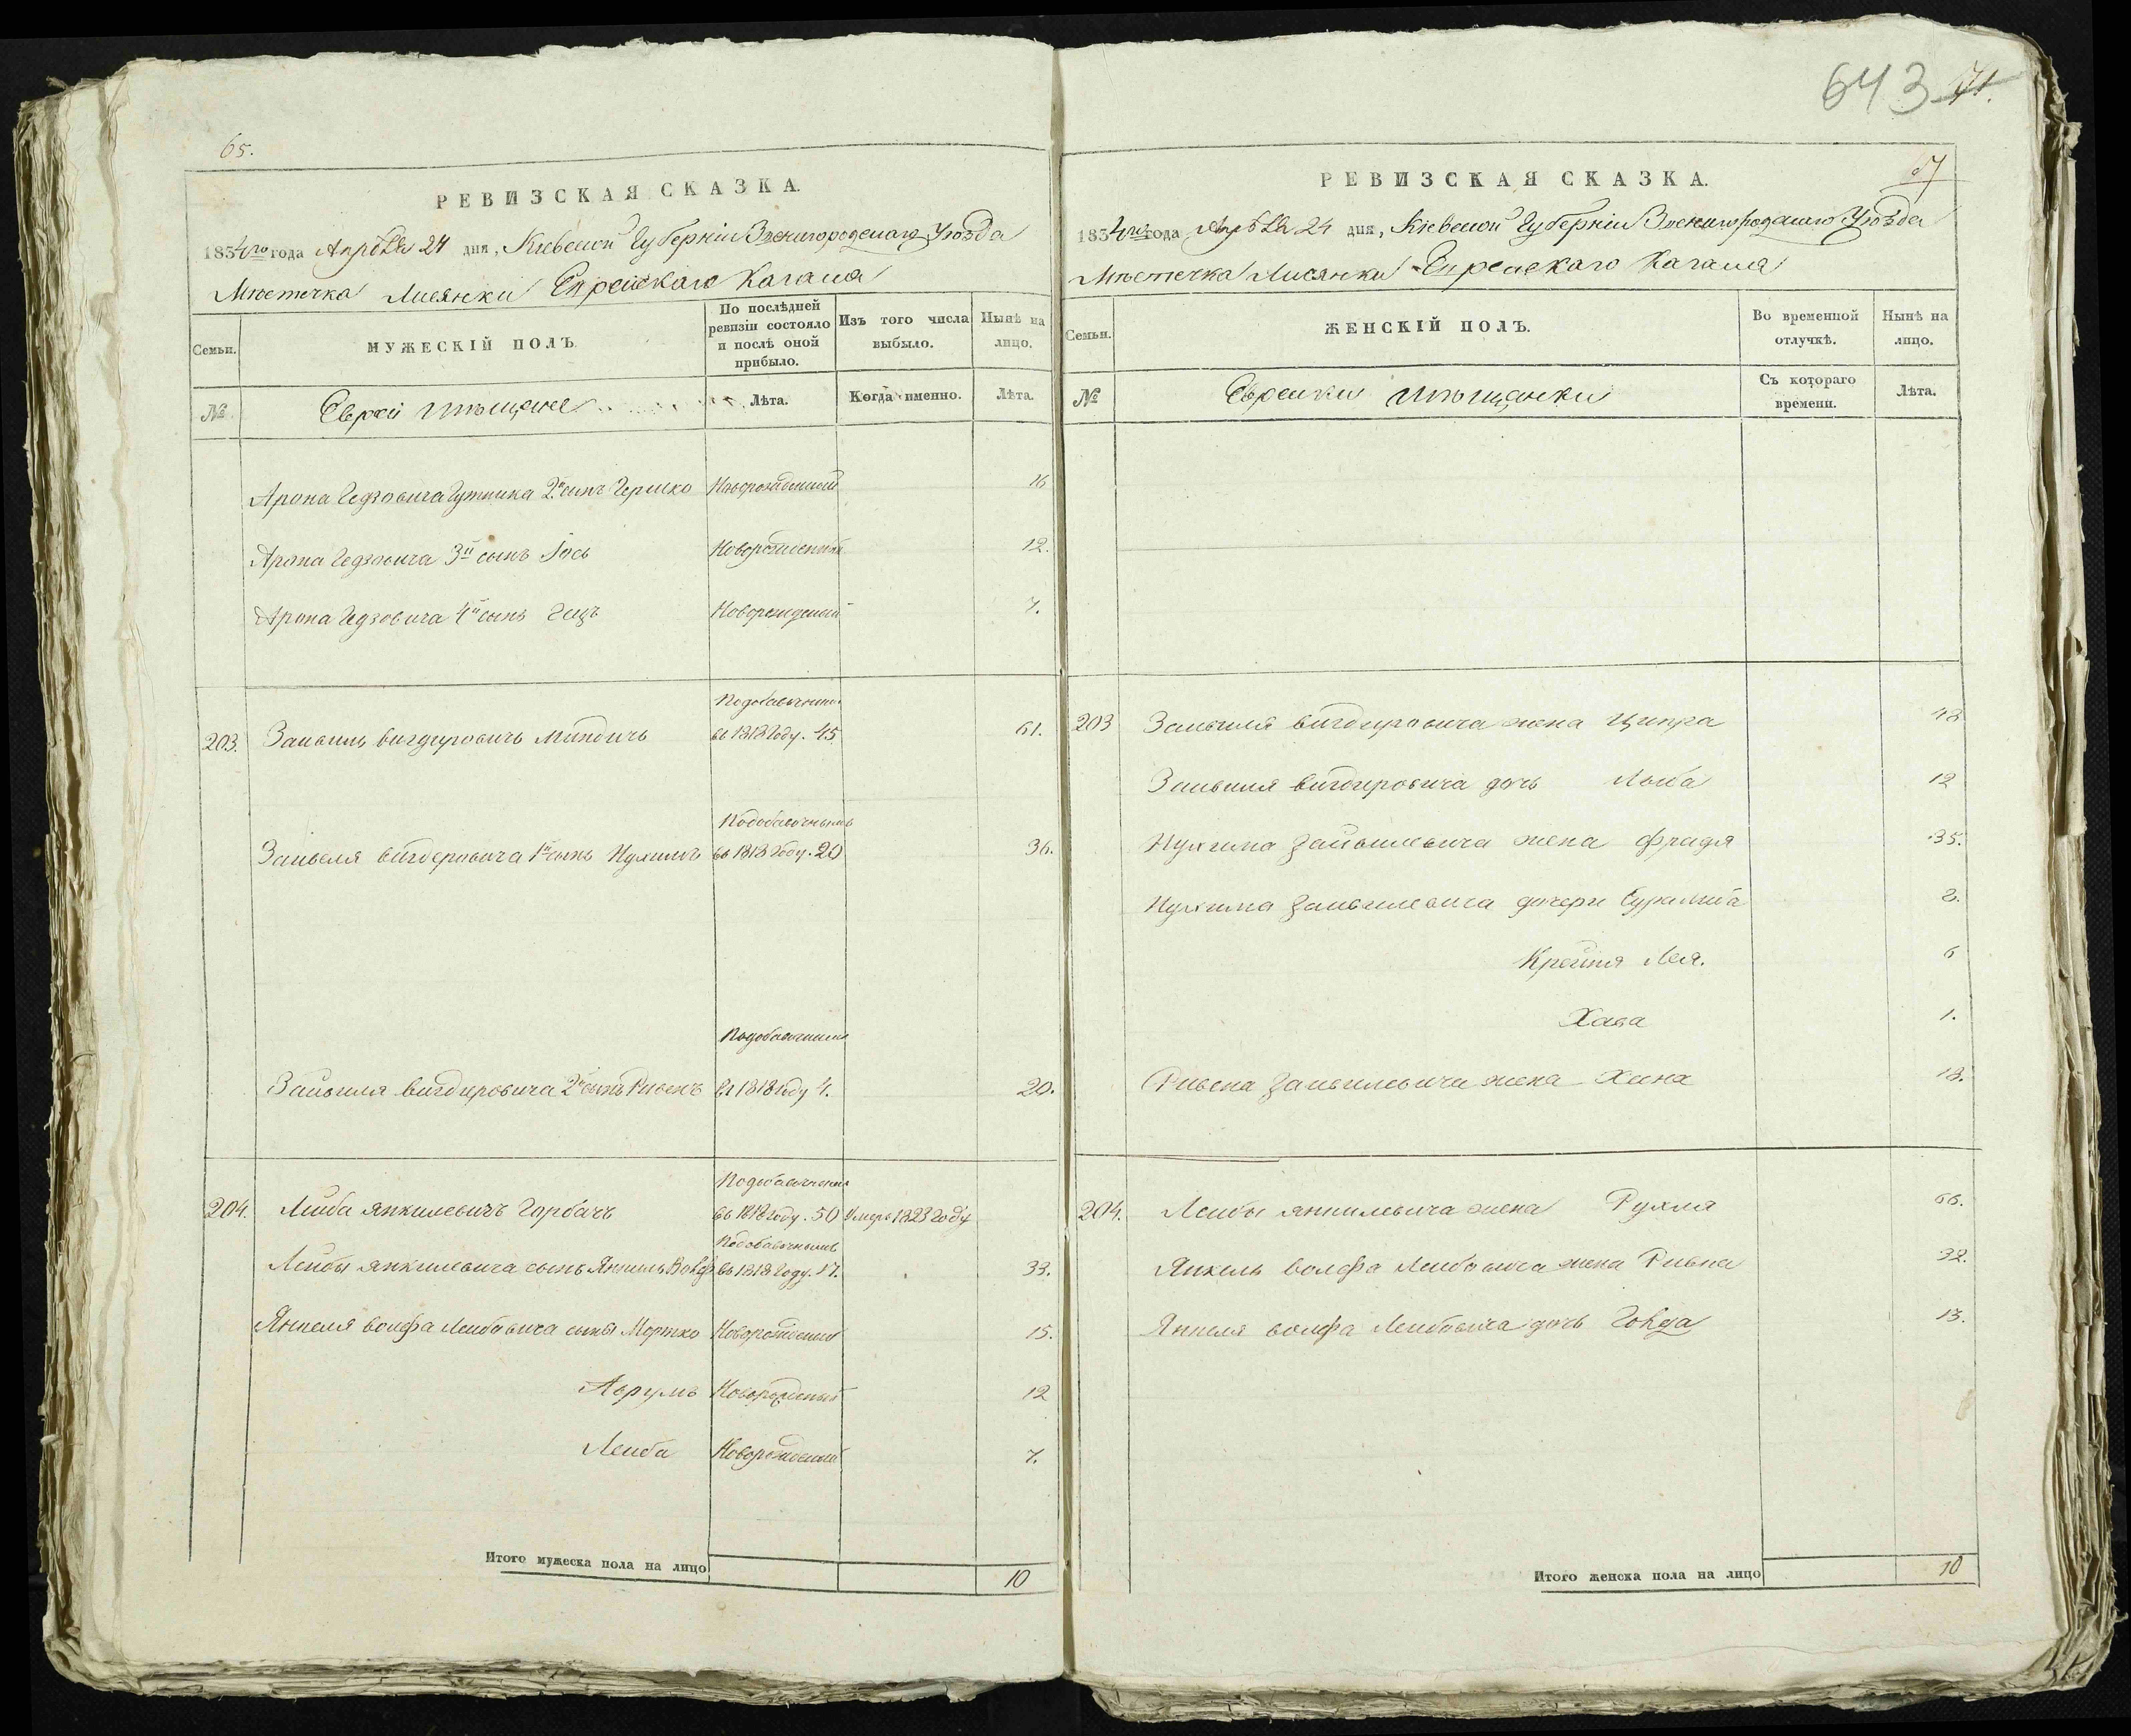 65.
РЕВИЗСКАЯ СКАЗКА.
1834го года Апрѣля 24 дня, Кіевской Губерніи Звенигородскаго Уѣзда
Мѣстечка Лисянки Еврейскаго Кагала
Семьи.
МУЖЕСКІЙ ПОЛЪ.
По послѣдней ревизіи состояло и послѣ оной прибыло.
Изъ того числа выбыло.
Нынѣ на лицо.
№
Евреи мѣщане
Лѣта.
Когда именно.
Лѣта.
Арона Гедзовича Гутника 2й сынъ Гершко Новорожденный 16
Арона Гедзовича 3й сынъ Іось Новорожденный 12.
Арона Гедзовича 4й сынъ Гецъ Новорожденый 7.
Подобавочнымъ
203. Занвиль Вигдировичъ Миндичъ въ 1818 Году. 45 61.
Подобавочнымъ
Занвеля Вигдеровича 1й сынъ Нухимъ въ 1818 Году. 20 36.
Подобавочнымъ
Занвиля Вигдировича 2й сынъ Рывенъ въ 1818 Году 4. 20.
Подобавочнымъ
204. Лейба Янкилевичъ Горбачъ въ 1818 году. 50 Умеръ 1823 Году
Подобавочнымъ
Лейбы Янкилевича сынъ Янкиль Волфъ въ 1818 Году. 17. 33.
Янкеля Волфа Лейбовича сыны Мортко Новорожденый 15.
Аврумъ Новорожденый 12
Лейба Новорожденый 7.
Итого мужеска пола на лицо 10
643 71.
67
РЕВИЗСКАЯ СКАЗКА.
1834го года Апрѣля 24 дня, Кіевской Губерніи Звенигородскаго Уѣзда
Мѣстечка Лисянки Еврейскаго Кагала
Семьи.
ЖЕНСКІЙ ПОЛЪ.
Во временной отлучкѣ.
Нынѣ на лицо.
№
Еврейки Мѣщанки
Съ котораго времени.
Лѣта.
203 Занвиля Вигдировича жена Ципра 48
Занвиля Вигдировича дочь 12
Нухима Занвилевича жена Фрадя 35.
Нухима Занвилевича дочери 8.
Крейня Лея. 6
Хава 1.
Рывена Занвилевича жена Хана 18.
204. Лейбы Янкилевича жена Рухля 66.
Янкель Волфа Лейбовича жена Ривка 32.
Янкеля Волфа Лейбовича дочь Голда 13.
Итого женска пола на лицо 10